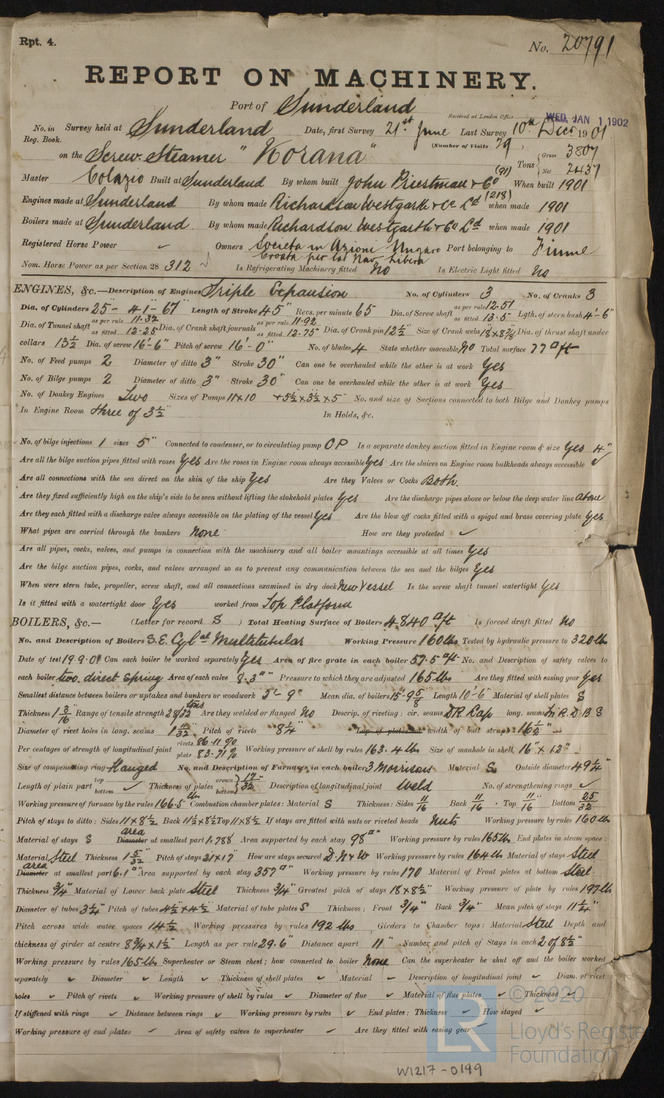 Rpt. 4.
No. 20791
REPORT ON MACHINERY.
Port of Sunderland
Received at London Office WED. JAN 1 1902
No. in Survey held at Sunderland Date, first Survey 21st June Last Survey 10th Dec 1901
Reg. Book. (Number of Visits 79
on the Screw Steamer "Korana" Tons Gross 3807 Net 2437
Master Built at Sunderland By whom built John Priestman & Co (91) When built 1901
Engines made at Sunderland By whom made Richardson Westgarth & Co Ld (218) when made 1901
Boilers made at Sunderland By whom made Richardson Westgarth & Co Ld when made 1901
Registered Horse Power Owners Societa in Azioni Ungaro Croata per la Nav. Libera Port belonging to Fiume
Nom. Horse Power as per Section 28 312 Is Refrigerating Machinery fitted No Is Electric Light fitted No
ENGINES, &c.—Description of Engines Triple Expansion No. of Cylinders 3 No. of Cranks 3
Dia. of Cylinders 25-41-67" Length of Stroke 45" Revs. per minute 65 Dia. of Screw shaft as per rule 12.51 as fitted 13.5" Lgth. of stern bush 4'-6"
Dia. of Tunnel shaft as per rule 11.32 as fitted 12.25" Dia. of Crank shaft journals as per rule 11.92 as fitted 12.75" Dia. of Crank pin 12½" Size of Crank webs 18x8⅜ Dia. of thrust shaft under
collars 13½ Dia. of screw 16'-6" Pitch of screw 16'-0" No. of blades 4 State whether moveable No Total surface 77 □ ft
No. of Feed pumps 2 Diameter of ditto 3" Stroke 30" Can one be overhauled while the other is at work Yes
No. of Bilge pumps 2 Diameter of ditto 3" Stroke 30" Can one be overhauled while the other is at work Yes
No. of Donkey Engines Two Sizes of Pumps 11x10 + 5½x3½x5 No. and size of Suctions connected to both Bilge and Donkey pumps
In Engine Room three of 3½" In Holds, &c.
No. of bilge injections 1 sizes 5" Connected to condenser, or to circulating pump CP Is a separate donkey suction fitted in Engine room & size Yes 4"
Are all the bilge suction pipes fitted with roses Yes Are the roses in Engine room always accessible Yes Are the sluices on Engine room bulkheads always accessible ✓
Are all connections with the sea direct on the skin of the ship Yes Are they Valves or Cocks Both.
Are they fixed sufficiently high on the ship's side to be seen without lifting the stokehold plates Yes Are the discharge pipes above or below the deep water line above
Are they each fitted with a discharge valve always accessible on the plating of the vessel Yes Are the blow off cocks fitted with a spigot and brass covering plate Yes
What pipes are carried through the bunkers None How are they protected ✓
Are all pipes, cocks, valves, and pumps in connection with the machinery and all boiler mountings accessible at all times Yes
Are the bilge suction pipes, cocks, and valves arranged so as to prevent any communication between the sea and the bilges Yes
When were stern tube, propeller, screw shaft, and all connections examined in dry dock New Vessel Is the screw shaft tunnel watertight Yes
Is it fitted with a watertight door Yes worked from Top Platform
BOILERS, &c.— (Letter for record S) Total Heating Surface of Boilers 4840 □ ft Is forced draft fitted No
No. and Description of Boilers S.E. Cylal Multitubular Working Pressure 160 lb Tested by hydraulic pressure to 320 lb
Date of test 19.9.01 Can each boiler be worked separately Yes Area of fire grate in each boiler 57.5 □ ft No. and Description of safety valves to
each boiler two. direct Spring Area of each valve Pressure to which they are adjusted 165 lb Are they fitted with easing gear Yes
Smallest distance between boilers or uptakes and bunkers or woodwork Mean dia. of boilers Length 10'-6" Material of shell plates S
Thickness 1 3/16 Range of tensile strength 28/32 tons Are they welded or flanged No Descrip. of riveting: cir. seams D R Lap long. seams T.R.D.B.S
Diameter of rivet holes in long. seams Pitch of rivets 8¼" Lap of plates or width of butt straps 16½"
Per centages of strength of longitudinal joint rivets 86.11% plate 83.71% Working pressure of shell by rules 163.4 lb Size of manhole in shell 16" x 12"
Size of compensating ring Flanged No. and Description of Furnaces in each boiler 3 Morrisons Material S. Outside diameter 49¼"
Length of plain part top bottom Thickness of plates crown bottom 19/32 Description of longitudinal joint Weld No. of strengthening rings ✓
Working pressure of furnace by the rules 166.5 lb Combustion chamber plates: Material S Thickness: Sides 11/16 Back 11/16 Top 11/16 Bottom 25/32
Pitch of stays to ditto: Sides 11x8½ Back 11½x8½ Top 11x8½ If stays are fitted with nuts or riveted heads Nuts Working pressure by rules 160 lb
Material of stays S area Diameter at smallest part 1.788 Area supported by each stay 98 □" Working pressure by rules 165 lb End plates in steam space:
Material Steel Thickness 1 5/32 Pitch of stays 21x17 How are stays secured D.N.&W. Working pressure by rules 164 lb Material of stays Steel
area Diameter at smallest part 6.1 □" Area supported by each stay 357 □" Working pressure by rules 170 Material of Front plates at bottom Steel
Thickness ¾" Material of Lower back plate Steel Thickness 3/4" Greatest pitch of stays 18x8½" Working pressure of plate by rules 197 lb
Diameter of tubes 3¼" Pitch of tubes 4½x4½ Material of tube plates S Thickness: Front 3/4" Back 3/4" Mean pitch of stays 11¼"
Pitch across wide water spaces 14½ Working pressures by rules 192 lbs Girders to Chamber tops: Material Steel Depth and
thickness of girder at centre 8¾x1½ Length as per rule 29.6" Distance apart 11" Number and pitch of Stays in each 2 of 8½"
Working pressure by rules 165 lb Superheater or Steam chest; how connected to boiler None Can the superheater be shut off and the boiler worked
separately ✓ Diameter ✓ Length ✓ Thickness of shell plates ✓ Material ✓ Description of longitudinal joint ✓ Diam. of rivet
holes ✓ Pitch of rivets ✓ Working pressure of shell by rules ✓ Diameter of flue ✓ Material of flue plates ✓ Thickness ✓
If stiffened with rings ✓ Distance between rings ✓ Working pressure by rules ✓ End plates: Thickness ✓ How stayed ✓
Working pressure of end plates ✓ Area of safety valves to superheater ✓ Are they fitted with easing gear ✓
© 2020
Lloyd's Register
Foundation
W1217-0199